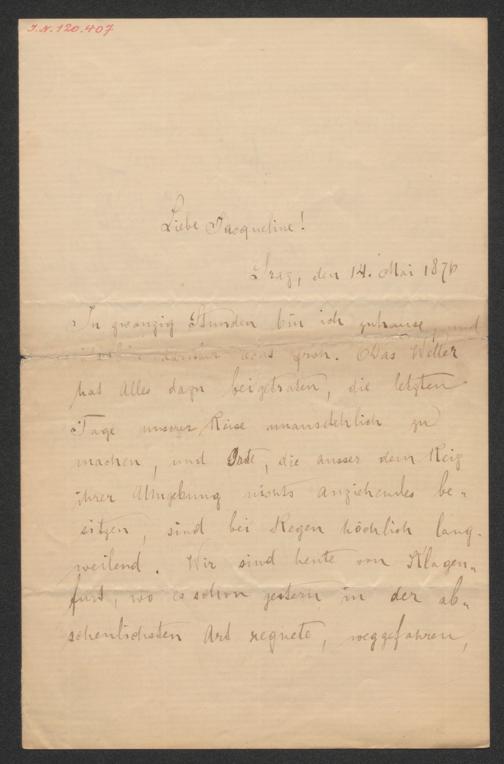 I.N. 120.407
Liebe Jacqueline!
Graz, den 14. Mai 1876
In zwanzig Stunden bin ich zuhause, und
darüber ganz froh. Das Wetter
hat Alles dazu beigetraten, die letzten
Tage unserer Reise unausstehlich zu
machen, und Orte, die ausser dem Reiz
ihrer Umgebung nichts anziehendes be-
sitzen, sind bei Regen höchlich lang-
weilend. Wir sind heute von Klagen-
furt, wo es schon gestern in der ab-
scheulichsten Art regnete, weggefahren,